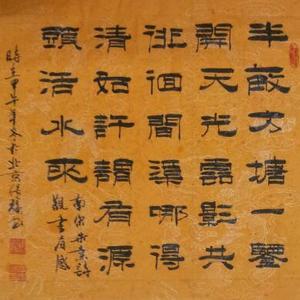 半畝方塘一鑒
開天光雲影共
徘徊問渠哪得
清如許謂有源
頭活水來
南宋朱熹詩
觀書有感
時在甲午年冬於北京